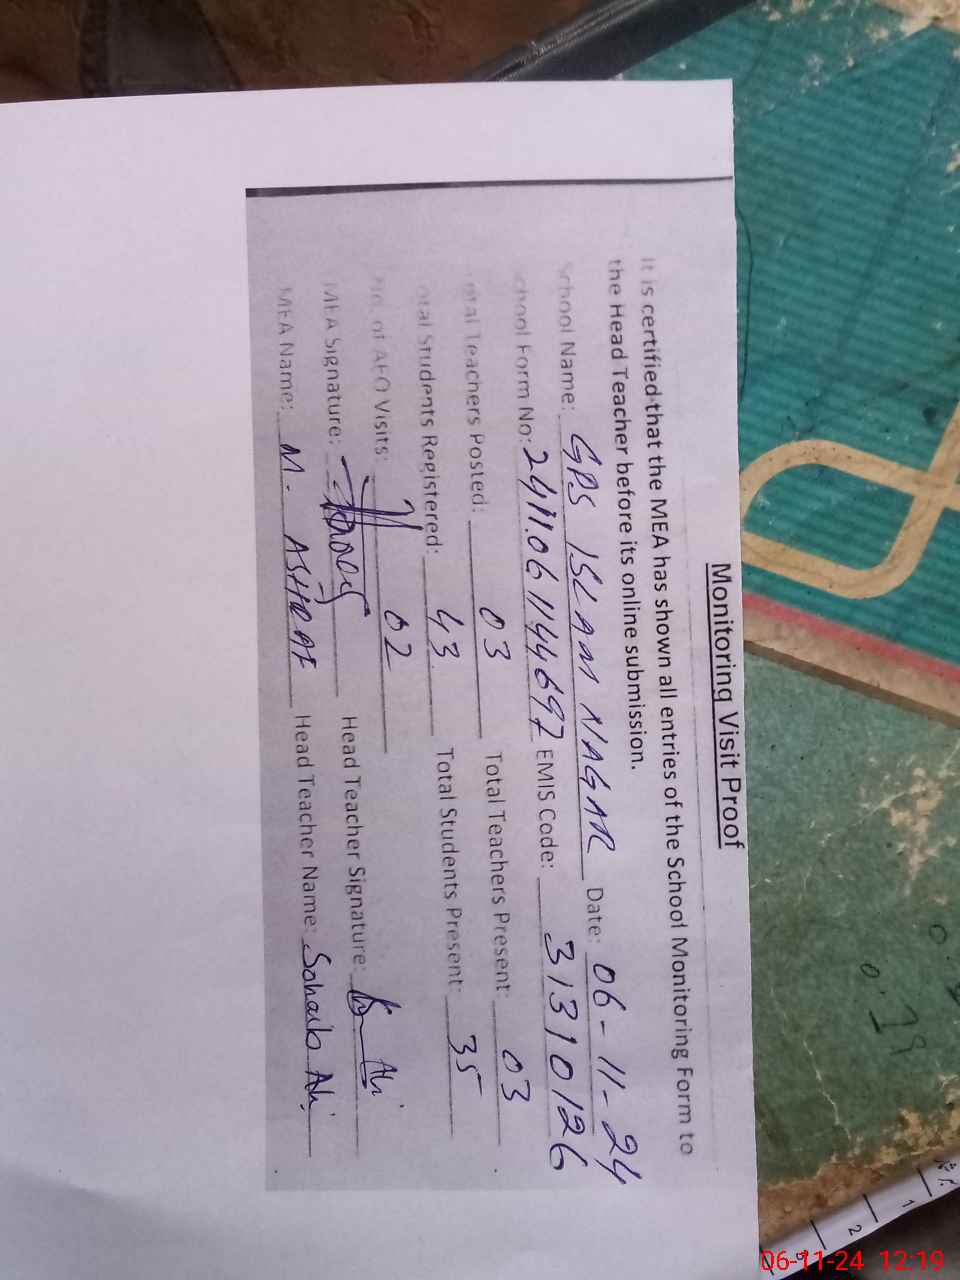 Monitoring Visit Proof
It is certified that the MEA has shown all entries of the School Monitoring Form to
the Head Teacher before its online submission.
School Name: GPS ISLAM NAGAR Date: 06-11-24
School Form No: 2411061144697 EMIS Code: 31310126
Total Teachers Posted: 03 Total Teachers Present: 03
Total Students Registered: 43 Total Students Present: 35
No. of AEO Visits: 02
MEA Signature: Head Teacher Signature: Ali
MEA Name: M. ASHRAF Head Teacher Name: Sohaib Ali
1
2
06-11-24 12:19